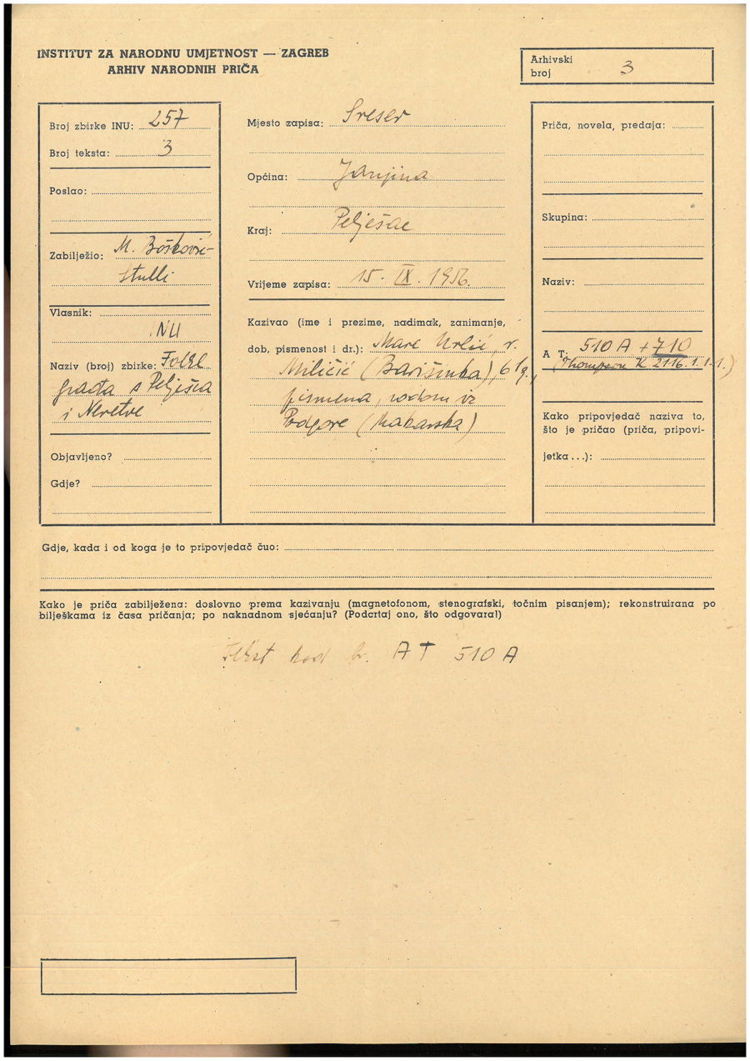 INSTITUT ZA NARODNU UMJETNOST — ZAGREB
ARHIV NARODNIH PRIČA
Arhivski
broj 3
Broj zbirke INU: 257
Broj teksta: 3
Poslao:
Zabilježio: M. Bošković-
Stulli
Vlasnik:
INU
Naziv (broj) zbirke: Folkl.
građa s Pelješca
i Neretve
Objavljeno?
Gdje?
Mjesto zapisa: Sreser
Općina: Janjina
Kraj: Pelješac
Vrijeme zapisa: 15. IX. 1956.
Kazivao (ime i prezime, nadimak, zanimanje,
dob, pismenost i dr.): Mare Urlić, r.
Miličić (Barišinka), 61 g.,
pismena, rodom iz
Podgore (Makarska)
Priča, novela, predaja:
Skupina:
Naziv:
A T: 510 A + 710
(Thompson K 2116.1.1.1.)
Kako pripovjedač naziva to,
što je pričao (priča, pripovi-
jetka...):
Gdje, kada i od koga je to pripovjedač čuo:
Kako je priča zabilježena: doslovno prema kazivanju (magnetofonom, stenografski, točnim pisanjem); rekonstruirana po
bilješkama iz časa pričanja; po naknadnom sjećanju? (Podcrtaj ono, što odgovara!)
Tekst kod br. AT 510 A